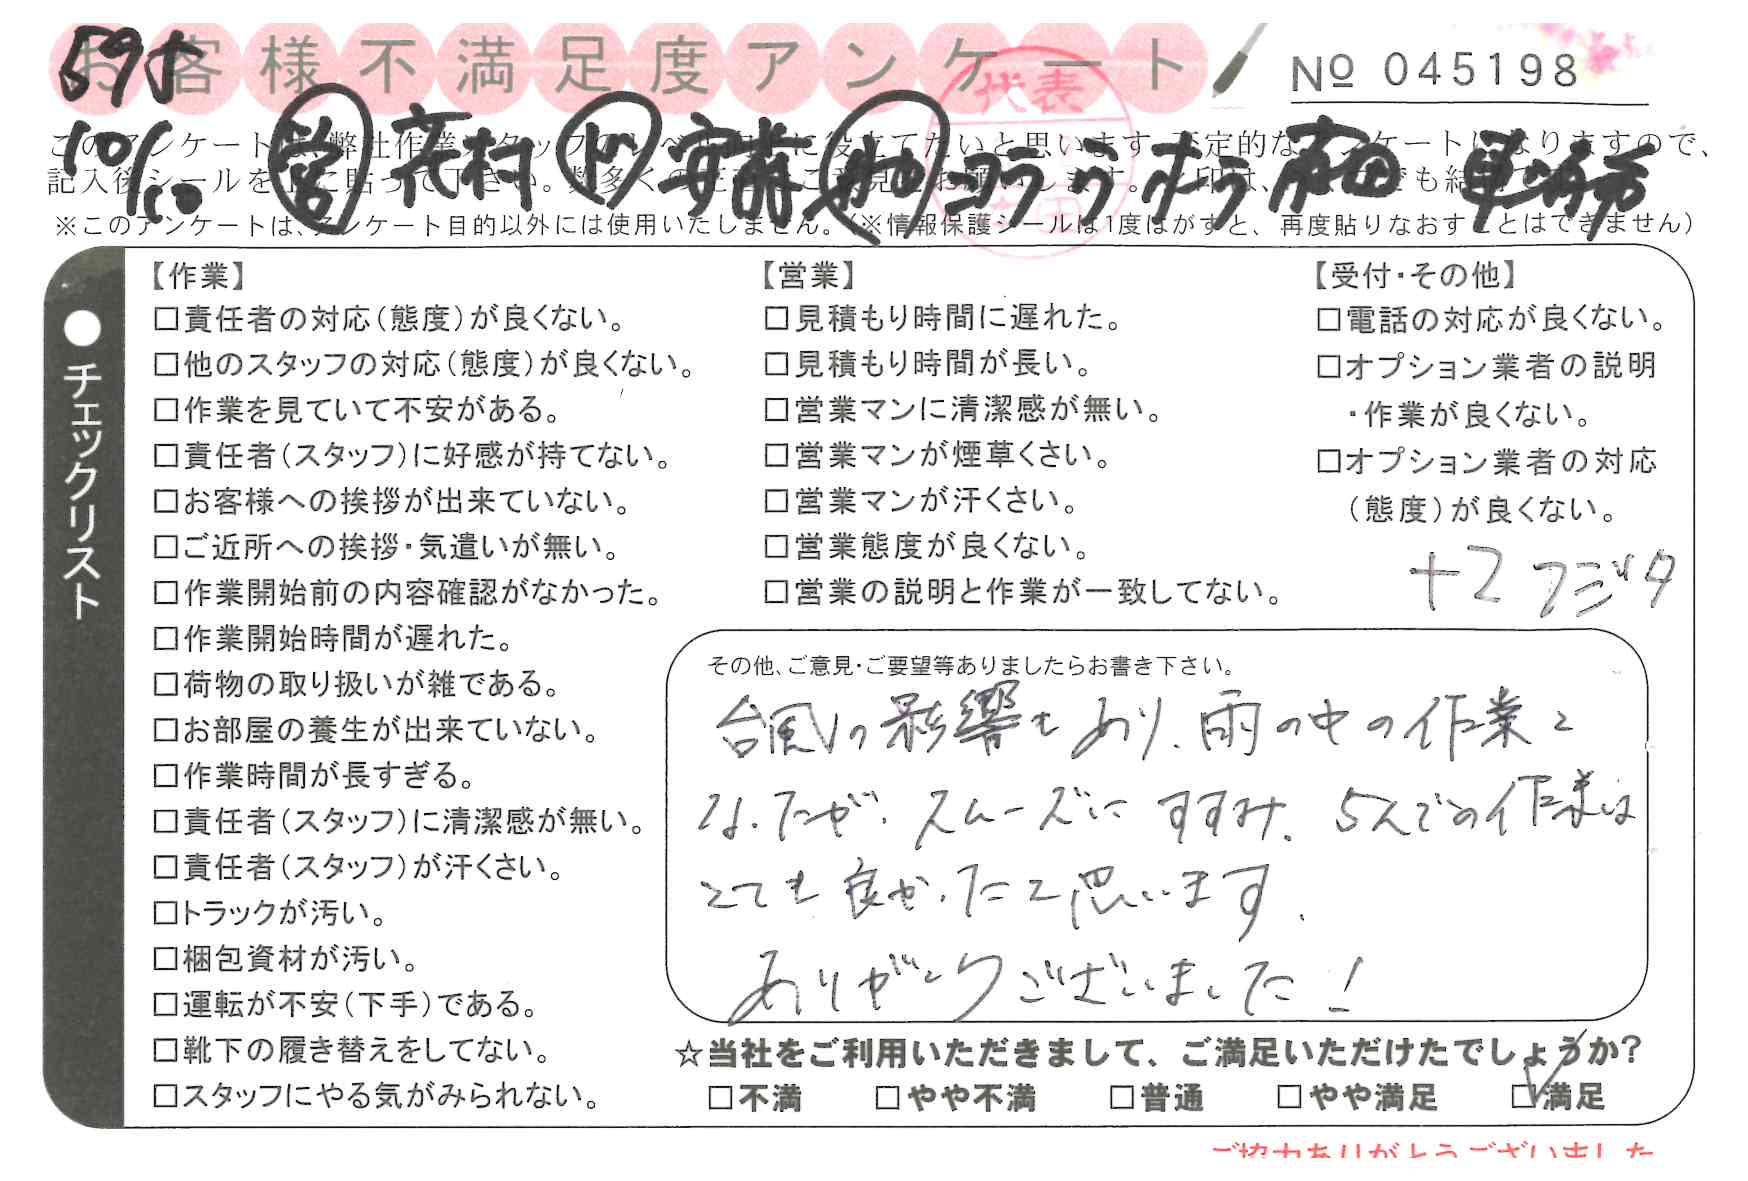 お客様不満足度アンケート
No 045198
代表
10/10 営 木村 ド 安藤
このアンケートは、弊社作業スタッフのレベル向上に役立てたいと思います。否定的なアンケートになりますので、
記入後シールを上に貼って下さい。数多くの正直なご意見をお願いします。
※このアンケートは、アンケート目的以外には使用いたしません。(※情報保護シールは1度はがすと、再度貼りなおすことはできません)
●チェックリスト
【作業】
□責任者の対応(態度)が良くない。
□他のスタッフの対応(態度)が良くない。
□作業を見ていて不安がある。
□責任者(スタッフ)に好感が持てない。
□お客様への挨拶が出来ていない。
□ご近所への挨拶・気遣いが無い。
□作業開始前の内容確認がなかった。
□作業開始時間が遅れた。
□荷物の取り扱いが雑である。
□お部屋の養生が出来ていない。
□作業時間が長すぎる。
□責任者(スタッフ)に清潔感が無い。
□責任者(スタッフ)が汗くさい。
□トラックが汚い。
□梱包資材が汚い。
□運転が不安(下手)である。
□靴下の履き替えをしてない。
□スタッフにやる気がみられない。
【営業】
□見積もり時間に遅れた。
□見積もり時間が長い。
□営業マンに清潔感が無い。
□営業マンが煙草くさい。
□営業マンが汗くさい。
□営業態度が良くない。
□営業の説明と作業が一致してない。
【受付・その他】
□電話の対応が良くない。
□オプション業者の説明
・作業が良くない。
□オプション業者の対応
(態度)が良くない。
+2 フジタ
その他、ご意見・ご要望等ありましたらお書き下さい。
台風の影響もあり、雨の中の作業と
なったが、スムーズにすすみ、5人での作業は
とても良かったと思います。
ありがとうございました!
☆当社をご利用いただきまして、ご満足いただけたでしょうか?
□不満 □やや不満 □普通 □やや満足 ☑満足
ご協力ありがとうございました